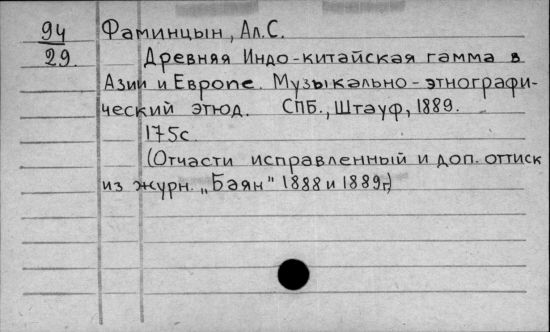 94
29.
Фаминцын, Ал.С.
Древняя Индо-китайская гамма в
Азии и Европе. Музыкально-этнографи-
ческий этюд. СПБ., Штауф, 1889.
175с.
(Отчасти исправленный и доп. оттиск
из журн. „Баян" 1888 и 1889г.)